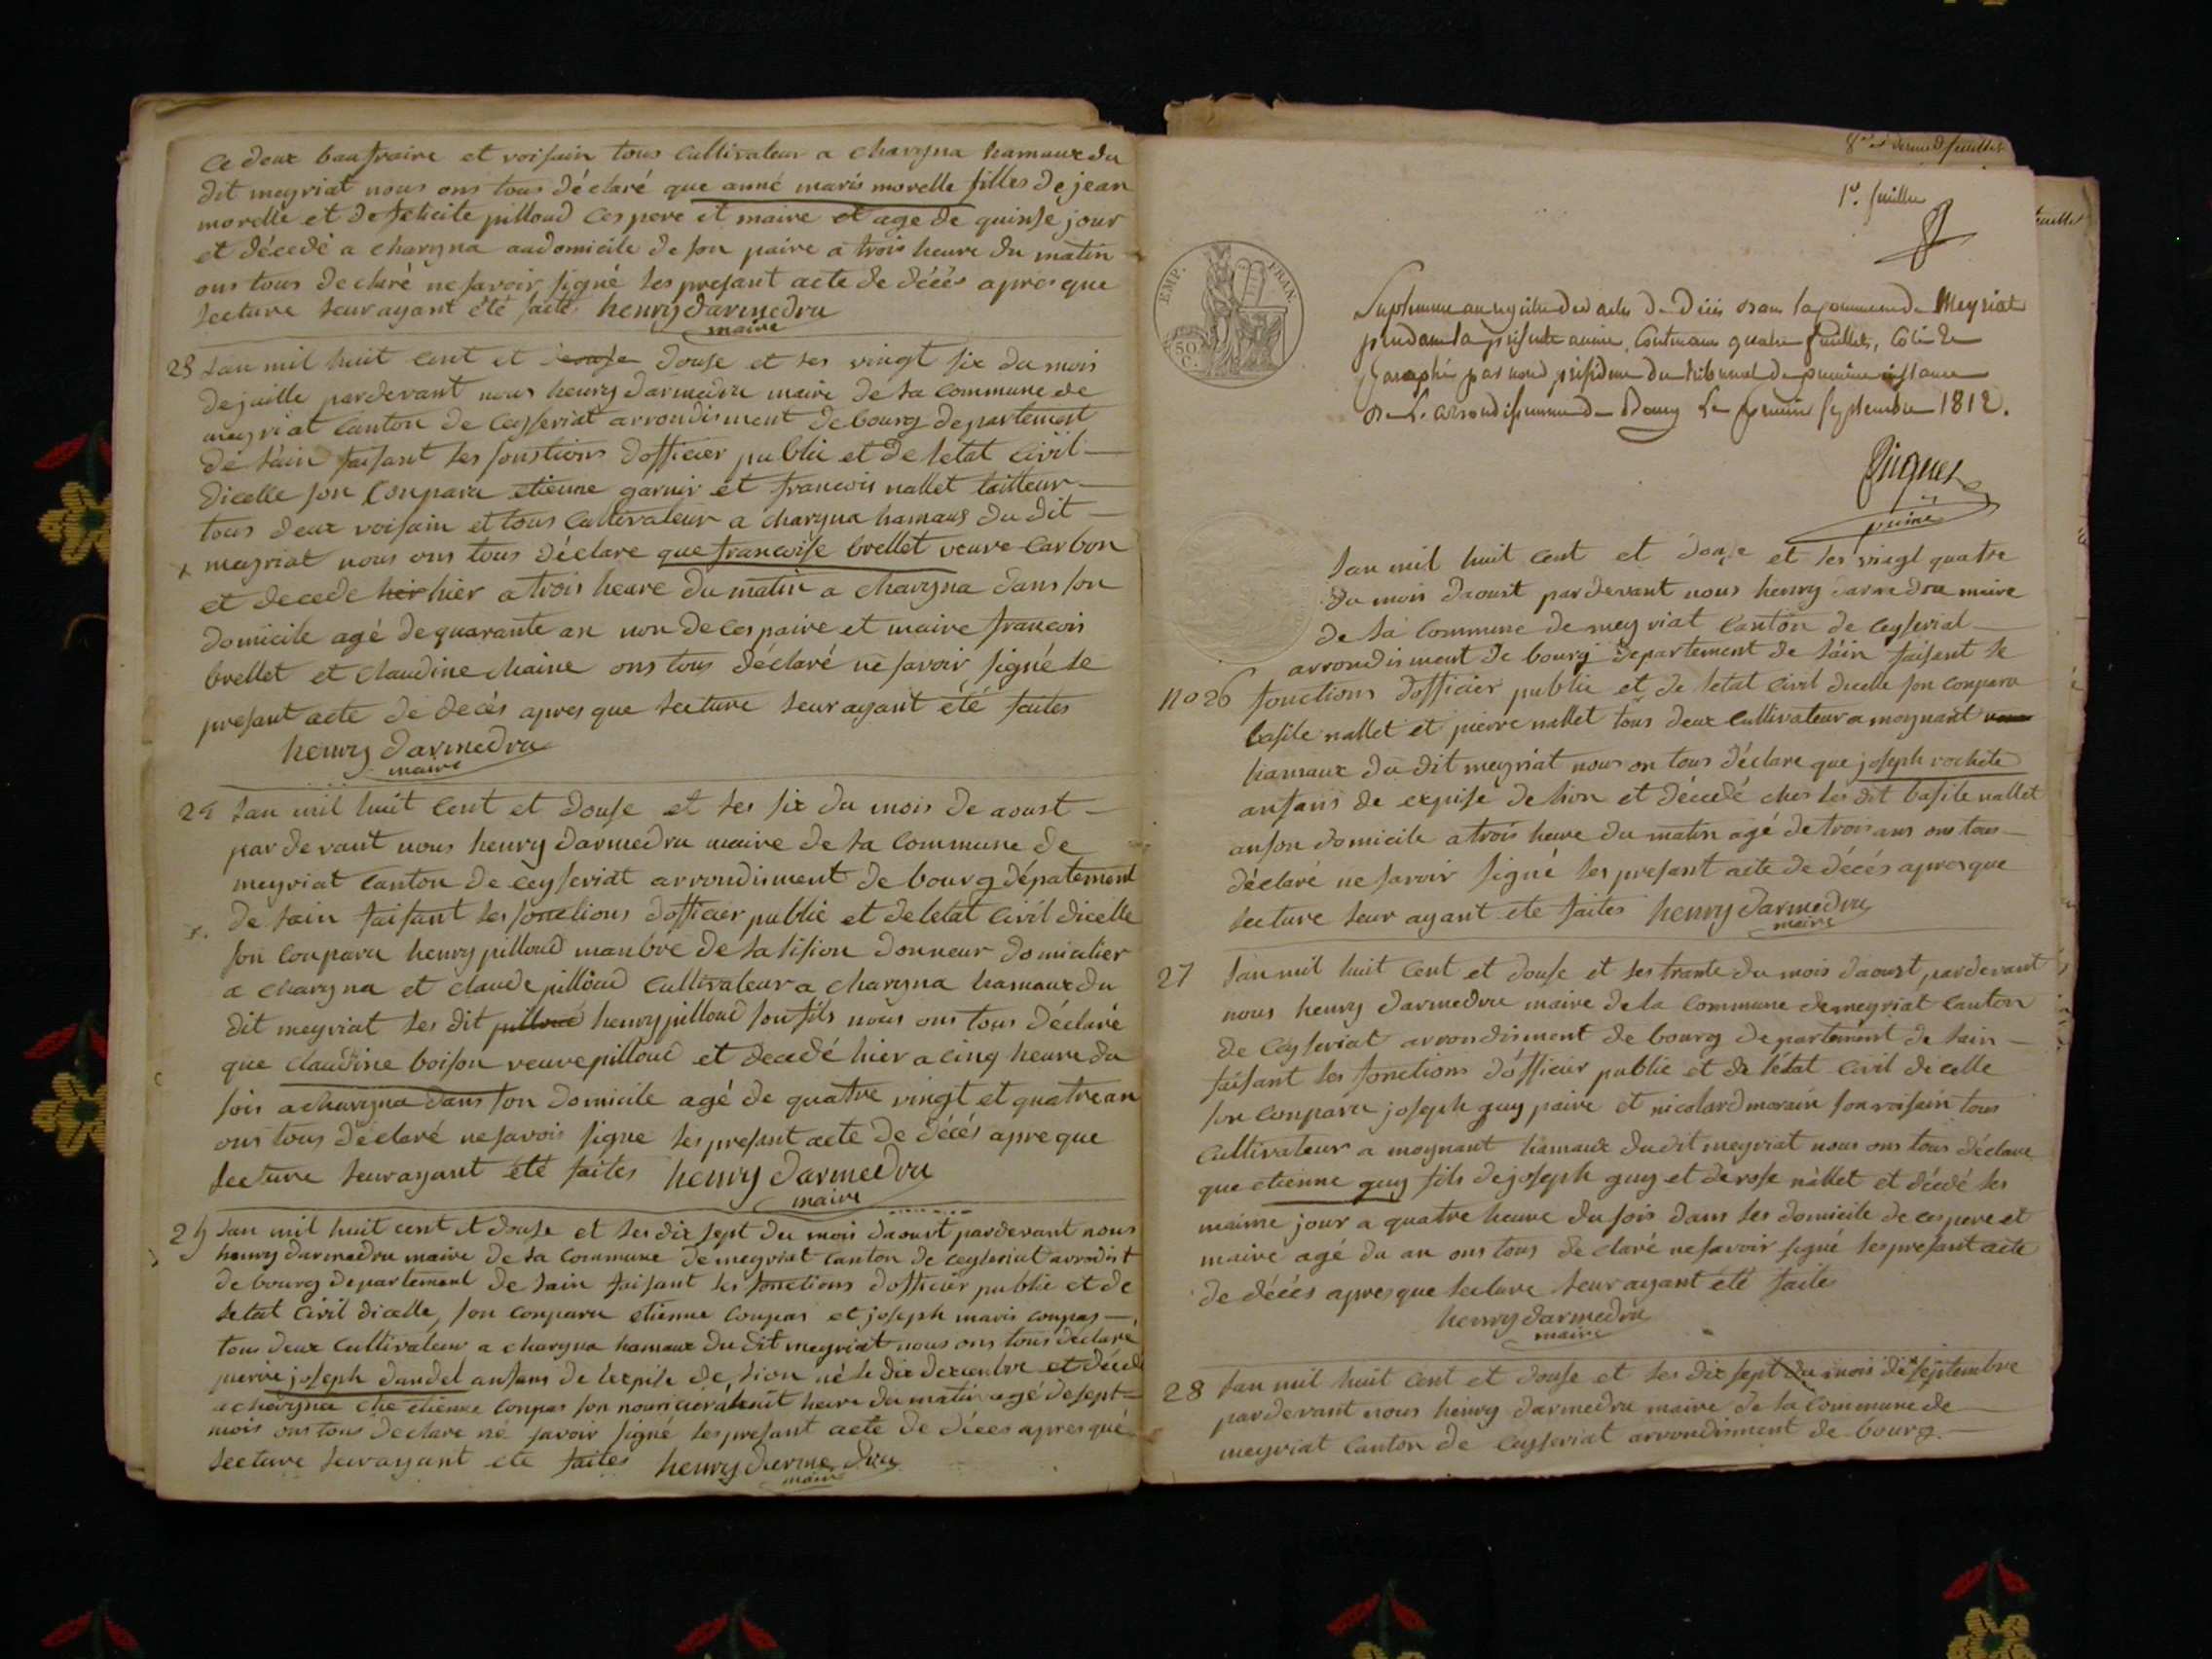 Ce deux baufraire et voisain tous Cultivateur a chavyna hamaux du
dit meyriat nous ons tous déclaré que anné maris morelle filles de jean
morelle et defelicite pilloud Ces pere et maire et age de quinse jour
et décedé a chavyna audomicile de son paire a trois heure du matin
ons tous declaré nesavoir signé les presant acte de décés apres que
lecture leur ayant été faite henry darmedru
maire
23 Lan mil huit Cent et douse et les vingt six du mois
dejuille pardevant nous henry darmedru maire de la Commune de
meyriat Canton de Ceyseriat arrondisment de bourg departement
de lain faisant les fonstions dofficier publie et de letat Civil
dicelle son Conparu etienne garnir et francois nallet tailleur
tous deux voisain et tous Cultivateur a chavyna hamaux du dit
x meyriat nous ons tous déclare que francoise brellet veuve Carbon
et decede her hier a trois heare du matin a chavyna dans son
domicile agé de quarante an non de Ces paire et maire francois
brellet et Claudine Chaine ons tous déclaré ne savoir signé le
presant acte de decés apres que lecture leur ayant été faites
henry darmedru
maire
24 Lan mil huit Cent et douse et les six du mois de aoust
par devant nous henry darmedru maire de la Commune de
meyriat Canton de Ceyseriat arrondisment de bourg départeme​nt
x. de lain faisant les fonctions dofficier publie et de letat Civil dicelle
son Conparu henry pilloud manbre de la lision donneur domicilier
a chavyna et claude pilloud Cultivateur a chavyna hamaux du
dit meyriat les dit pilloud henry pilloud son fils nous ons tous déclaré
que claudine boison veuve pilloud et decedé hier a cinq heure du
soir a chavyna dans son domicile agé de quatre vingt et quatre an
ons tous déclaré nesavoir signe les presant acte de décés apre que
lecture leur ayant été faites henry darmedru
maire
25 Lan mil huit cent et douse et les dix sept du mois daoust pardevant nous
henry darmedru maire de la Commune de meyriat Canton de Ceyseriat
de bourg departement de lain faisant les fonctions dofficier publie et de
letat Civil dicelle, son Conparu etienne Conpas et joseph maris Conpas
tous deux Cultivateur a chavyna hamaux du dit meyriat nous ons tous déclaré
pierre joseph dandel anfans de lexpise de lion né le dix dexenbre et décedé
a chavyna che etienne Conpas son nouricier a huit heure du matin agé de sept
mois ons tous declare né savoir signé les presant acte de décés apres que
lecture leur ayant été faites henry darmedru
maire
8e et dernier feuillet
1er feuillet
feuillet
EMP. FRAN.
50 C.
Suplement au registre des actes de Décès dans la Commune de Meyriat
pendant la présente année, Contenant quatre feuillets, Coté &
paraphé par nous président du tribunal de première instance
de L'arrondissement de Bourg Le premier Septembre 1812.
Lan mil huit Cent et douse et les vingt quatre
du mois daoust pardevant nous henry darmedru maire
de la Commune de meyriat Canton de Ceyseriat
arrondisment de bourg departement de lain faisant le
no 26 fonctions dofficier publie et de letat Civil dicelle son Conparu
basile nallet et pierre nallet tous deux Cultivateur a moynant
hamaux du dit meyriat nous on tous déclare que joseph rochete
anfans de expise de lion et décedé ches les dit basile nallet
anson domicile a trois heure du matin agé de trois ans ons tous
déclaré ne savoir signé les presant acte de décés apres que
lecture leur ayant ete faites henry darmedru
maire
27 Lan mil huit Cent et douse et les trante du mois daoust pardevant
nous henry darmedru maire de la Commune de meyriat Canton
de Ceyseriat arrondisment de bourg departement de lain
faisant les fonctions dofficier publie et de létat Civil dicelle
son Conparu joseph guy paire et nicolard morain son voisain tous
Cultivateur a moynant hamaux du dit meyriat nous ons tous déclare
que etienne guy fils de joseph guy et de rose nallet et décedé les
maime jour a quatre heure du soir dans les domicile de ces pere et
maire agé du an ons tous declaré nesavoir signé les presant acte
de décés apres que lecture leur ayant été faite
henry darmedru
maire
28 Lan mil huit Cent et douse et les dix sept du mois de septembre
pardevant nous henry darmedru maire de la Commune de
meyriat Canton de Ceyseriat arrondisment de bourg